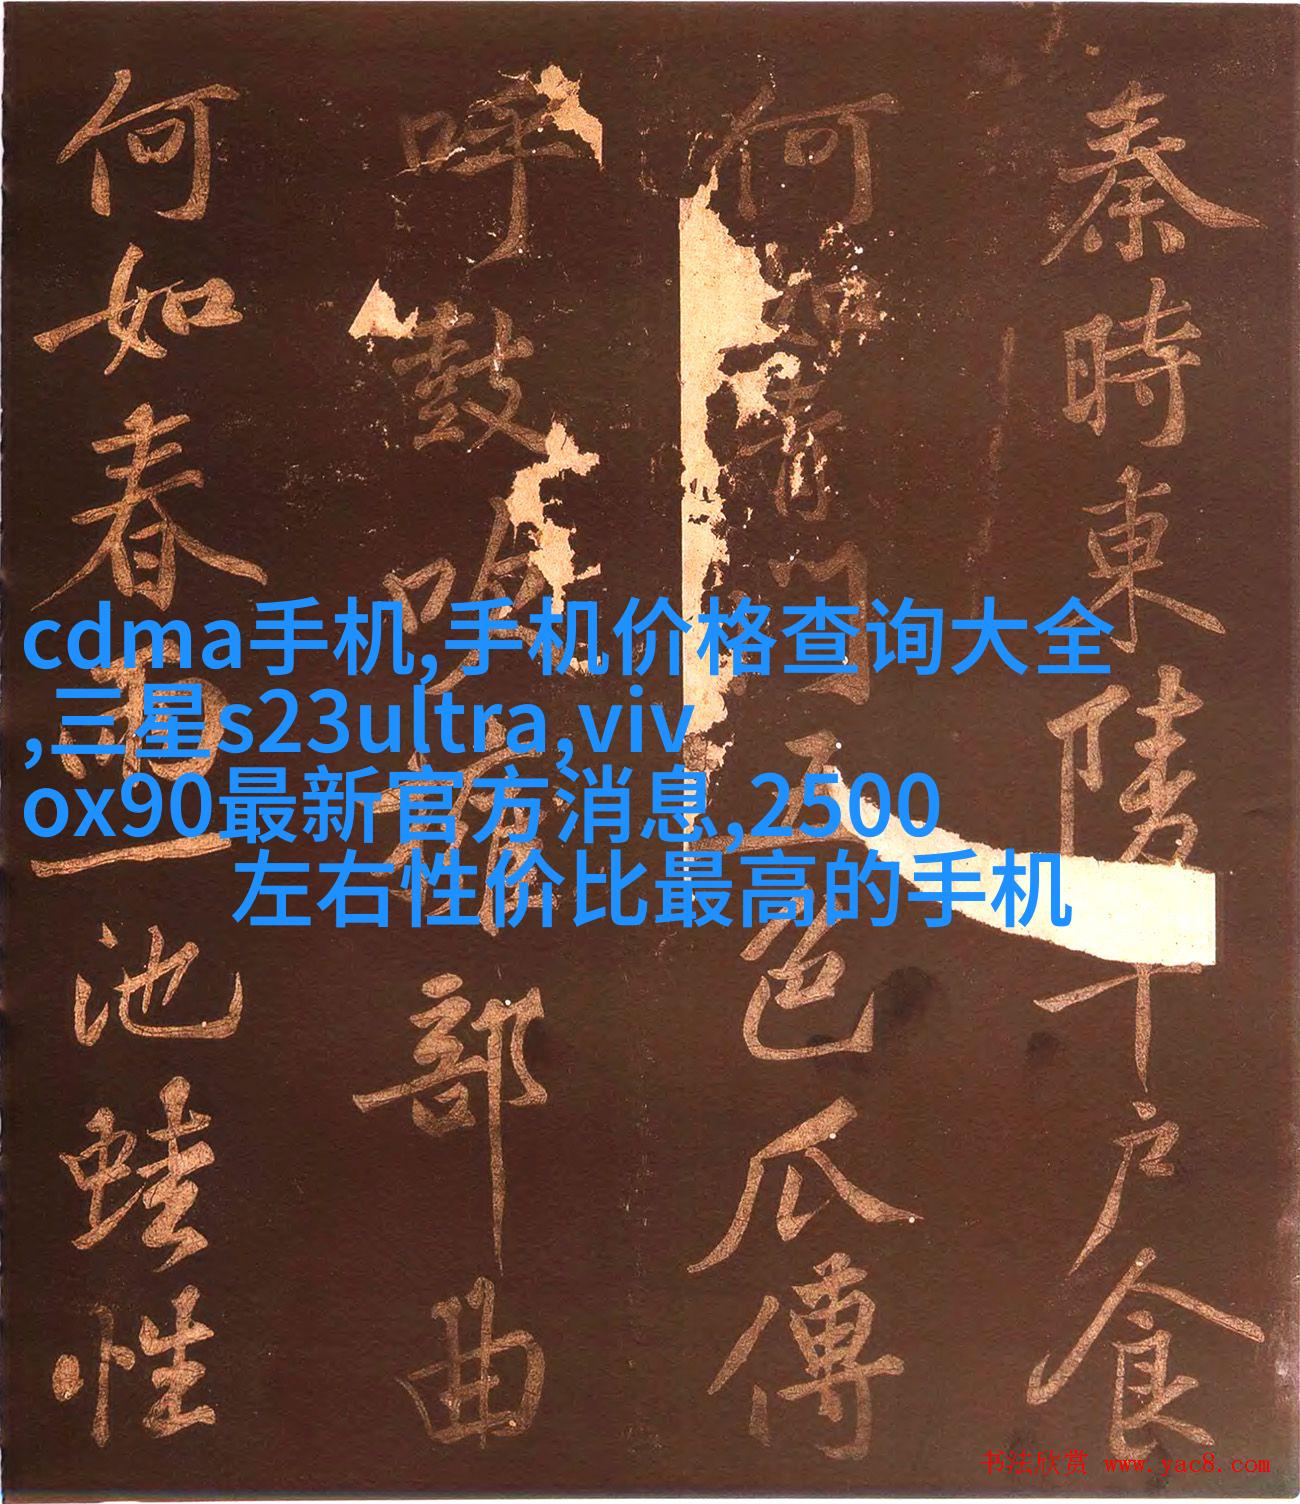 cdma手机,手机价格查询大全
,三星s23ultra,viv
ox90最新官方消息,2500
左右性价比最高的手机
秦時東陵千戶食
何如青門五色瓜傳
呼鼓吹部曲
何如春雨一池蛙性
书法欣赏 www.yac8.com